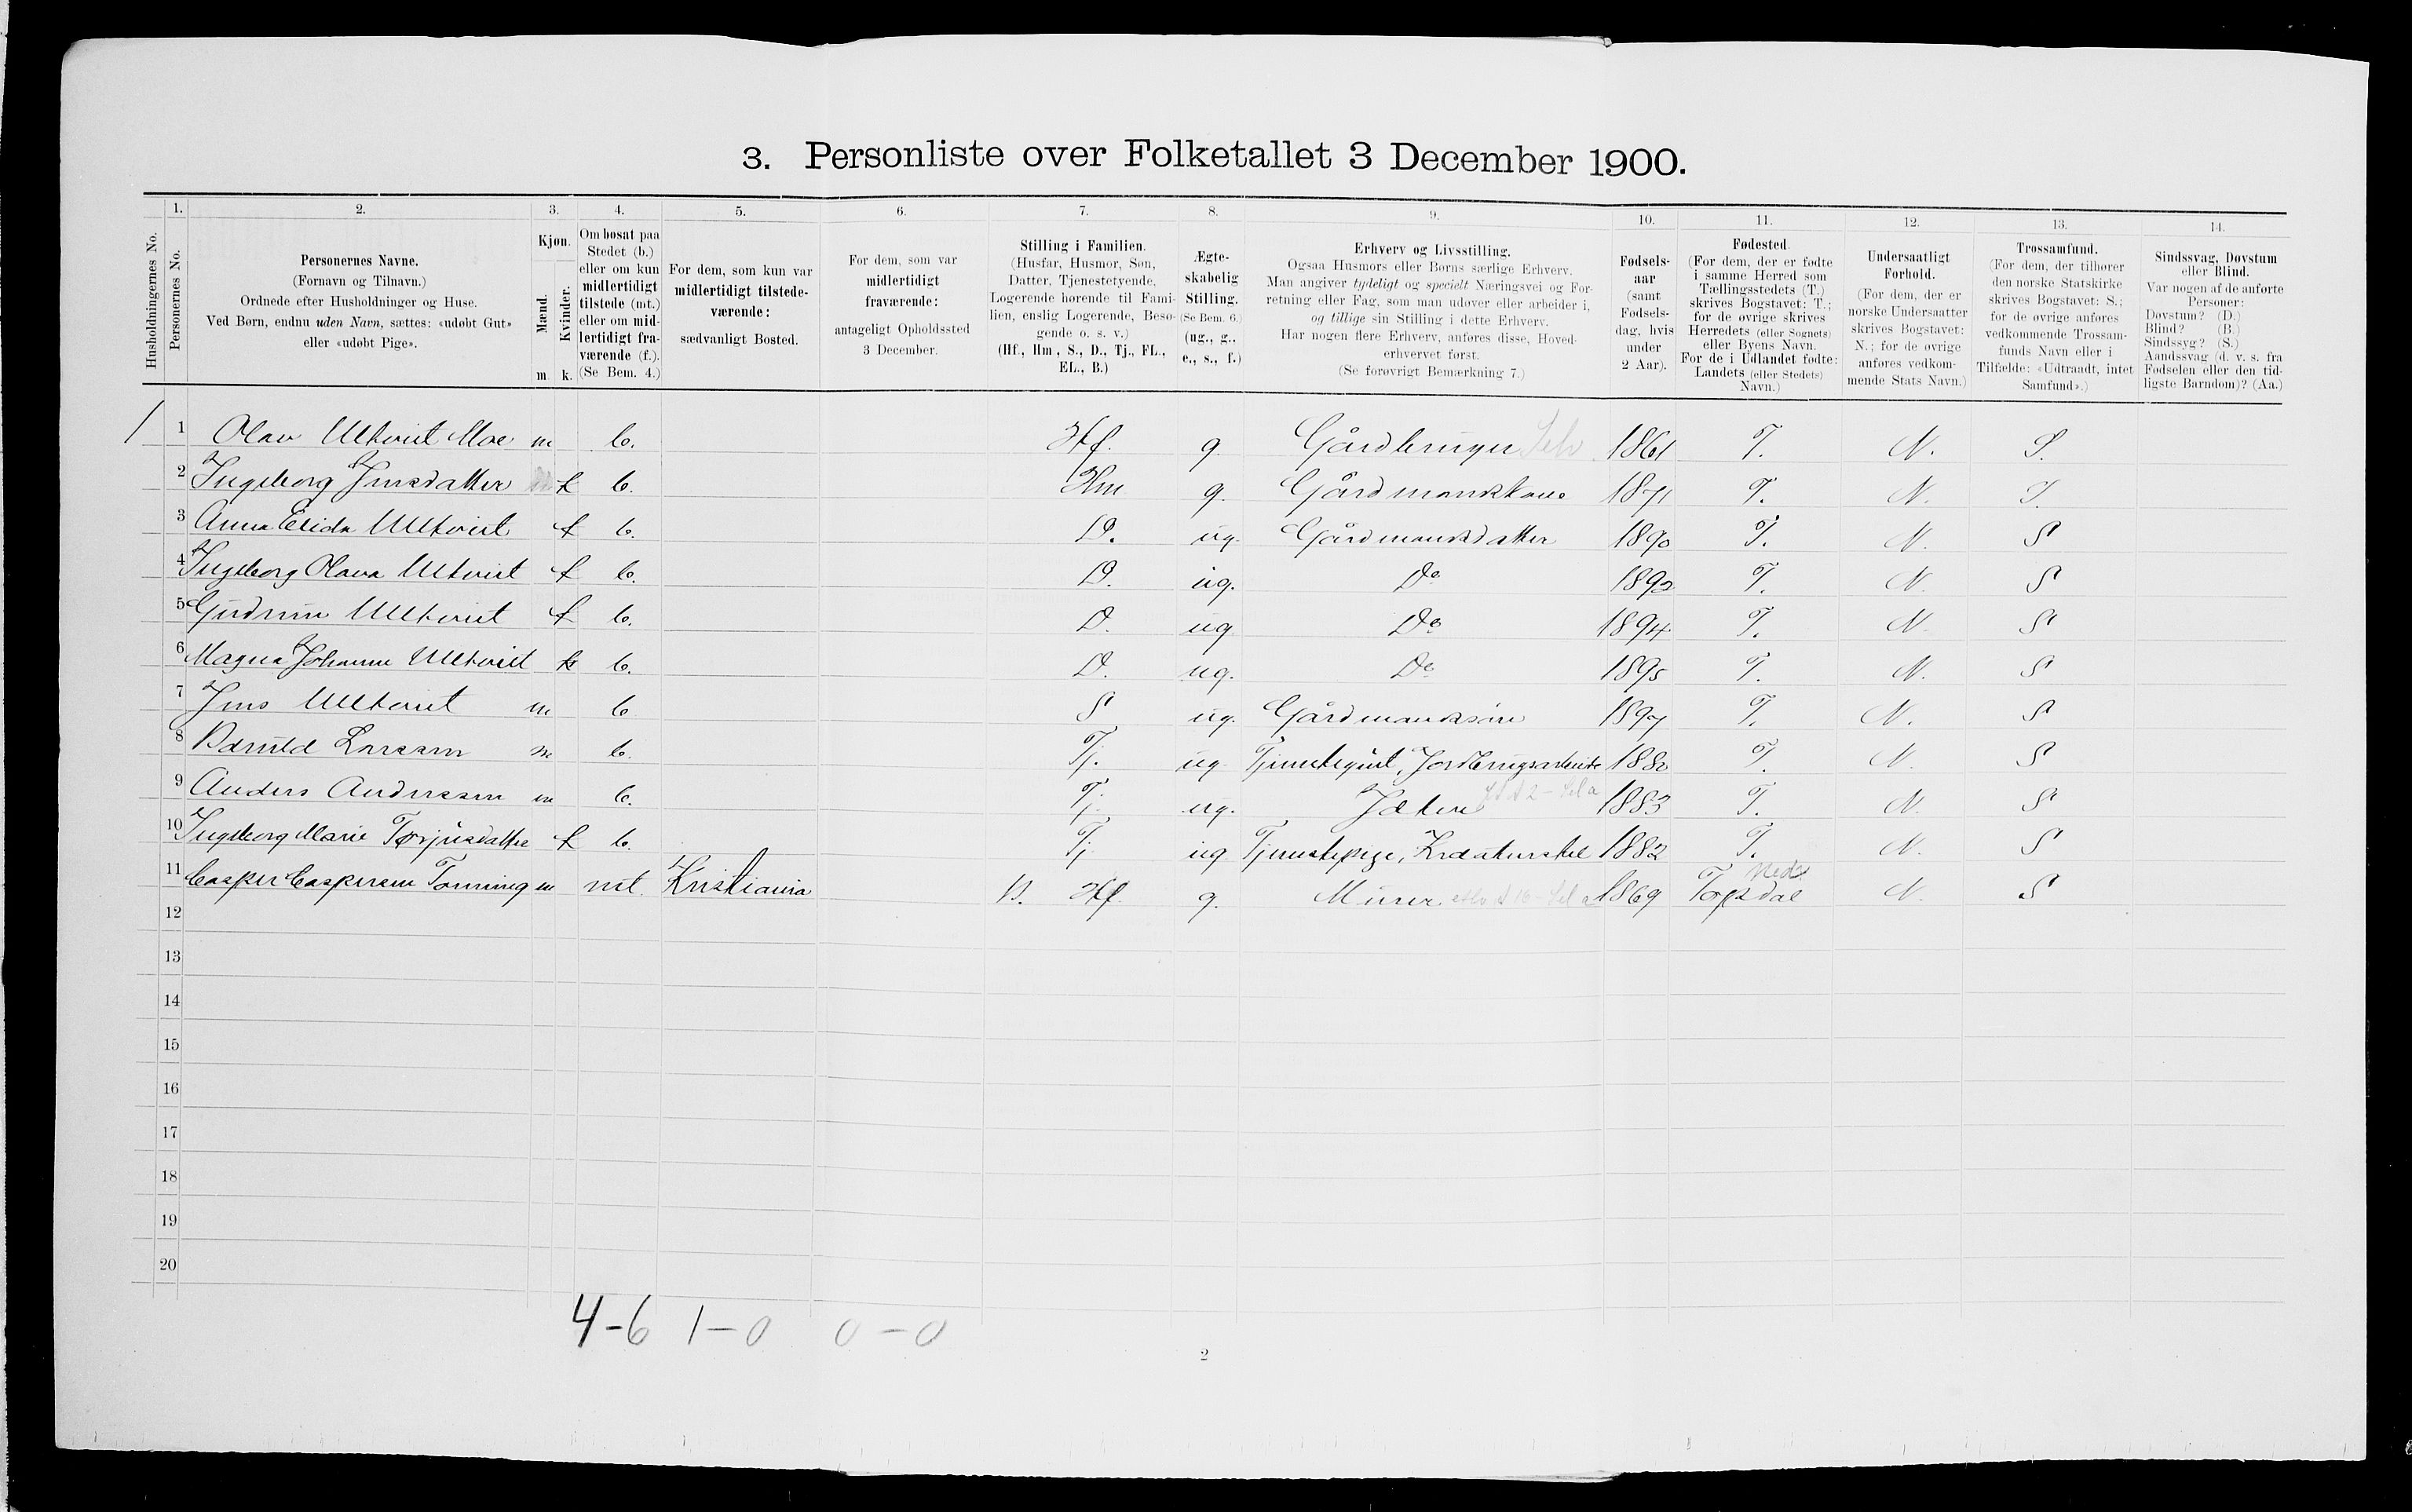 3. Personliste over Folketallet 3 December 1900.
1. 2. 3. 4. 5. 6. 7. 8. 9. 10. 11. 12. 13. 14.
Husholdningernes No.
Personernes No.
Personernes Navne.
(Fornavn og Tilnavn.)
Ordnede efter Husholdninger og Huse.
Ved Børn, endnu uden Navn, sættes: «udøbt Gut»
eller «udøbt Pige».
Kjøn.
Mænd.
Kvinder.
m. k.
Om bosat paa
Stedet (b.)
eller om kun
midlertidigt
tilstede (mt.)
eller om mid-
lertidigt fra-
værende (f.).
(Se Bem. 4.)
For dem, som kun var
midlertidigt tilstede-
værende:
sædvanligt Bosted.
For dem, som var
midlertidigt
fraværende:
antageligt Opholdssted
3 December.
Stilling i Familien.
(Husfar, Husmor, Søn,
Datter, Tjenestetyende,
Logerende hørende til Fami-
lien, enslig Logerende, Besø-
gende o. s. v.)
(Hf., Hm., S., D., Tj., FL.,
EL., B.)
Ægte-
skabelig
Stilling.
(Se Bem. 6.)
(ug., g.,
e., s., f.)
Erhverv og Livsstilling.
Ogsaa Husmors eller Børns særlige Erhverv.
Man angiver tydeligt og specielt Næringsvei og For-
retning eller Fag, som man udøver eller arbeider i,
og tillige sin Stilling i dette Erhverv.
Har nogen flere Erhverv, anføres disse, Hoved-
erhvervet først.
(Se forøvrigt Bemærkning 7.)
Fødsels-
aar
(samt
Fødsels-
dag, hvis
under
2 Aar).
Fødested.
(For dem, der er fødte
i samme Herred som
Tællingsstedets (T.)
skrives Bogstavet: T.;
for de øvrige skrives
Herredets (eller Sognets)
eller Byens Navn.
For de i Udlandet fødte:
Landets (eller Stedets)
Navn.)
Undersaatligt
Forhold.
(For dem, der er
norske Undersaatter
skrives Bogstavet:
N.; for de øvrige
anføres vedkom-
mende Stats Navn.)
Trossamfund.
(For dem, der tilhører
den norske Statskirke
skrives Bogstavet: S.;
for de øvrige anføres
vedkommende Trossam-
funds Navn eller i
Tilfælde: «Udtraadt, intet
Samfund».)
Sindssvag, Døvstum
eller Blind.
Var nogen af de anførte
Personer:
Døvstum? (D.)
Blind? (B.)
Sindssyg? (S.)
Aandssvag (d. v. s. fra
Fødselen eller den tid-
ligste Barndom)? (Aa.)
1 1 Olav Ulltveit Moe m b. Hf. g. Gårdbruger Selv 1861 T. N. S.
2 Ingeborg Jensdatter k b. Hm g. Gårdmandskone 1871 T. N. S.
3 Anna Elida Ulltveit k b. D. ug. Gårdmandsdatter 1890 T. N. S
4 Ingeborg Olava Ulltveit k b. D. ug. Do 1892 T. N. S
5 Gudrun Ulltveit k b. D. ug Do 1894 T. N. S
6 Magna Johanne Ulltveit k b. D. ug. Do 1895 T. N. S
7 Jens Ulltveit m b S ug. Gårdmandssøn 1897 T. N. S
8 Larssen m b. Tj. ug Tjenestegut, Jordbrugsarbeide 1880 T. N. S
9 Anders Anderssen m b. Tj ug. Jæter 1883 T. N. S
10 Ingeborg Marie Torjusdatter k b. Tj ug Tjenestepige, Kreaturstel 1882 T. N. S
11 Casper Casperssen Tonning m mt. Kristiania B. Hf. g. Murer 1869 Torresdal N. S
12
13
14
15
16
17
18
19
20
4-6 1-0 0-0
2